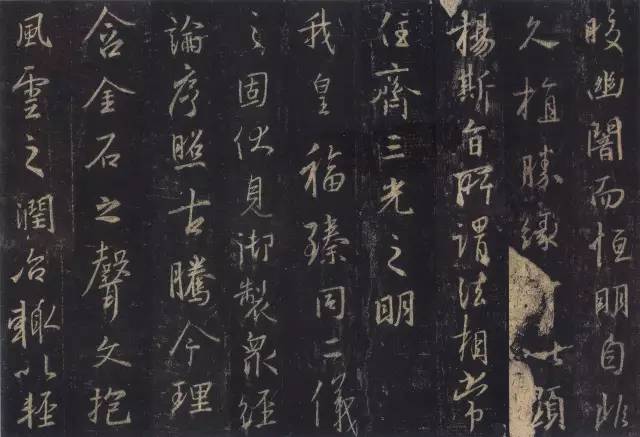 皎幽闇而恒明自非
久植勝緣以顯
揚斯旨所謂法相常
住齊三光之明
我皇福臻同二儀
之固伏見御製衆經
論序照古騰今理
含金石之聲文抱
風雲之潤治輒以輕